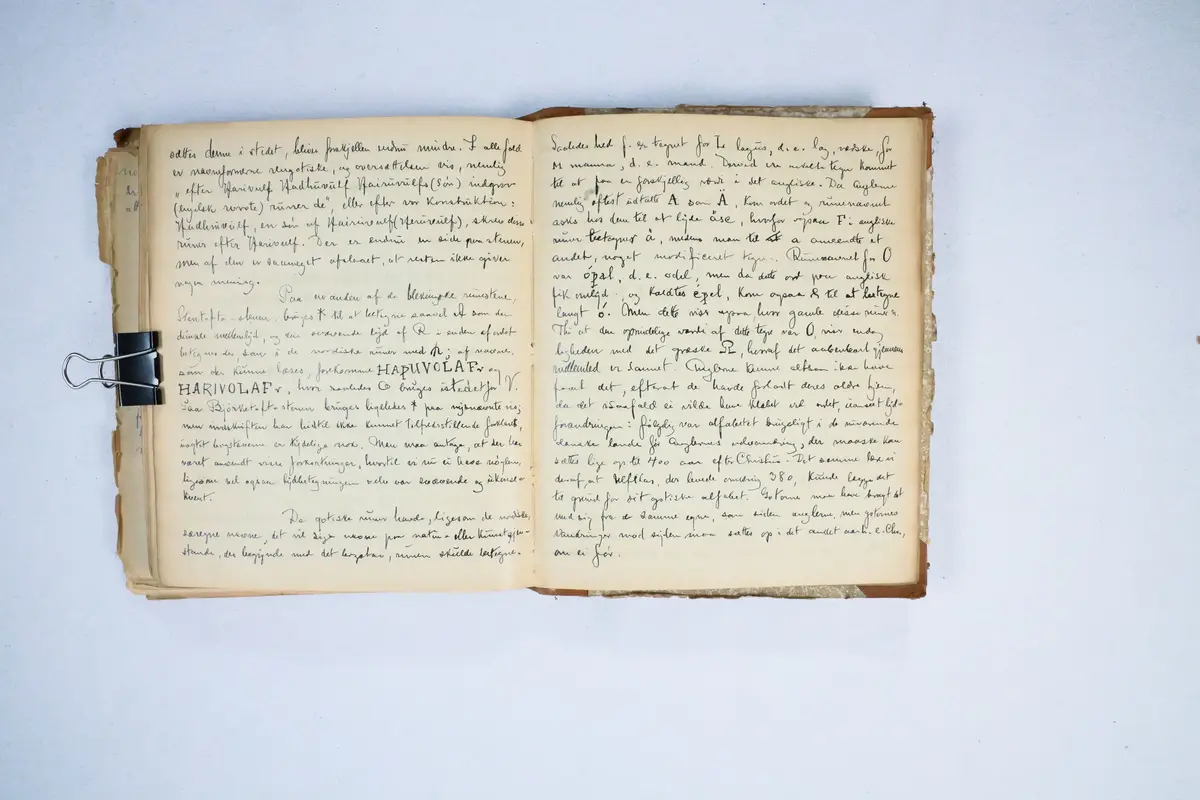 sættes denne i stedet, bliver forskjellen endnu mindre. I alle fald
er navneformerne slegtiske, og oversættelsen vis, nemlig
„efter Harivulf Hadhuvulf Hairuvulfs (søn) indgrov
(engelsk wrote) runer de", eller efter vor Konstruktion:
Hadhuvulf, en søn af Hairuvulf (Heruvulf), skrev disse
runer efter Harivulf. Der er endnu en side paa stenen,
men af den er saameget afslaaet, at resten ikke giver
nogen mening.
Paa en anden af de blekingske runestene,
Stentofta-stenen, bruges * til at betegne saavel A som den
dunkle mellemlyd, og den svævende lyd af R i enden af ordet
betegnes der, som i de nordiske runer med ᛦ; af navne,
som der kunne læses, forekomme HAPUVOLAFR og
HARIVOLAFR, hvor saaledes O bruges istedetfor V.
Paa Björketorp-stenen bruges ligeledes * paa nysnævnte vis;
men indskriften har hidtil ikke kunnet tilfredsstillende forklares,
uagtet bogstaverne er tydelige nok. Man maa antage, at der her
været anvendt visse forkortninger, hvortil vi nu ei have nøglen,
ligesom vel ogsaa lydbetegningen endnu var svævende og ubestemt
De gotiske runer havde, ligesom de nordiske,
særegne navne, det vil sige navne paa natur- eller kunstgjen-
stande, der begynde med det bogstav, runen skulde betegne.
Saaledes hed f. ex. tegnet for L lagus, d. e. lag, vædske, for
M manna, d. e. mand. Derved ere enkelte tegn kommet
til at faa en forskjellig værdi i det angliske. Da anglerne
nemlig oftest udtalte A som Ä, kom ordet og runenavnet
asks hos dem til at lyde äse, hvorfor ogsaa F i angliske
runer betegner ä, medens man til a anvendte et
andet, noget modificeret tegn. Runenavnet for O
var óþal, d. e. odel, men da dette ord paa anglisk
fik omlyd, og kaldtes éþel, kom ogsaa ᛟ til at betegne
langt é. Men dette viser ogsaa hvor gamle disse runer er.
Thi at den oprindelige værdi af dette tegn var O, viser endog
ligheden med det græske Ω, hvoraf det aabenbart gjennem
mellemled er dannet. Anglerne kunne altsaa ikke have
faaet det, efterat de havde forladt deres ældre hjem,
da det isaafald ei vilde have klæbet ved ordet, uanseet lyd-
forandringen: følgelig var alfabetet brugeligt i de nuværende
danske lande før anglernes udvandring, der maaske kan
sættes lige op til 400 aar efter Christus. Det samme sees
deraf, at Ulfilas, der levede omkring 380, kunde lægge det
til grund for sit gotiske alfabet. Goterne maa have bragt det
med sig fra de samme egne, som siden anglerne, men goternes
vandringer mod syden maa sættes op i det andet aarh. e. Chr.,
om ei før.